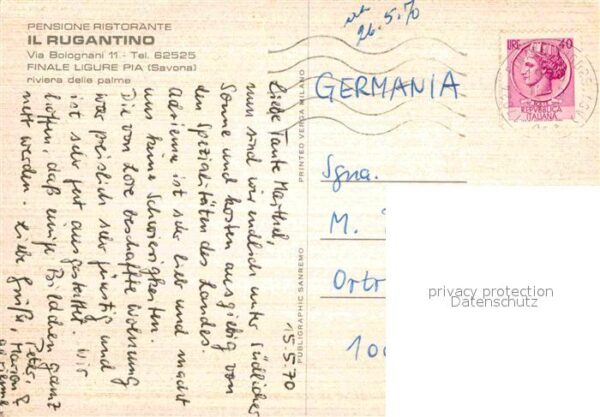 PENSIONE RISTORANTE
IL RUGANTINO
Via Bolognani 11 - Tel. 62525
FINALE LIGURE PIA (Savona)
riviera delle palme
26.5.70
LIRE 40
REPVBBLICA
ITALIANA
GERMANIA
Sgna.
M.
Ortr
100
PRINTED VERGA MILANO
PUBLIGRAPHIC SANREMO
15.5.70
Liebe Tante Marthel,
nun sind wir endlich unter südlicher
Sonne und kosten ausgiebig von
den Spezialitäten des Landes.
Adrienne ist sehr lieb und macht
uns keine Schwierigkeiten.
Die von Lore beschaffte Wohnung
war preislich sehr günstig und
ist sehr gut ausgestattet. Wir
hoffen, daß einige Bildchen ganz
nett werden. Liebe Grüße
Peter,
Marion &
Adrienne
privacy protection
Datenschutz